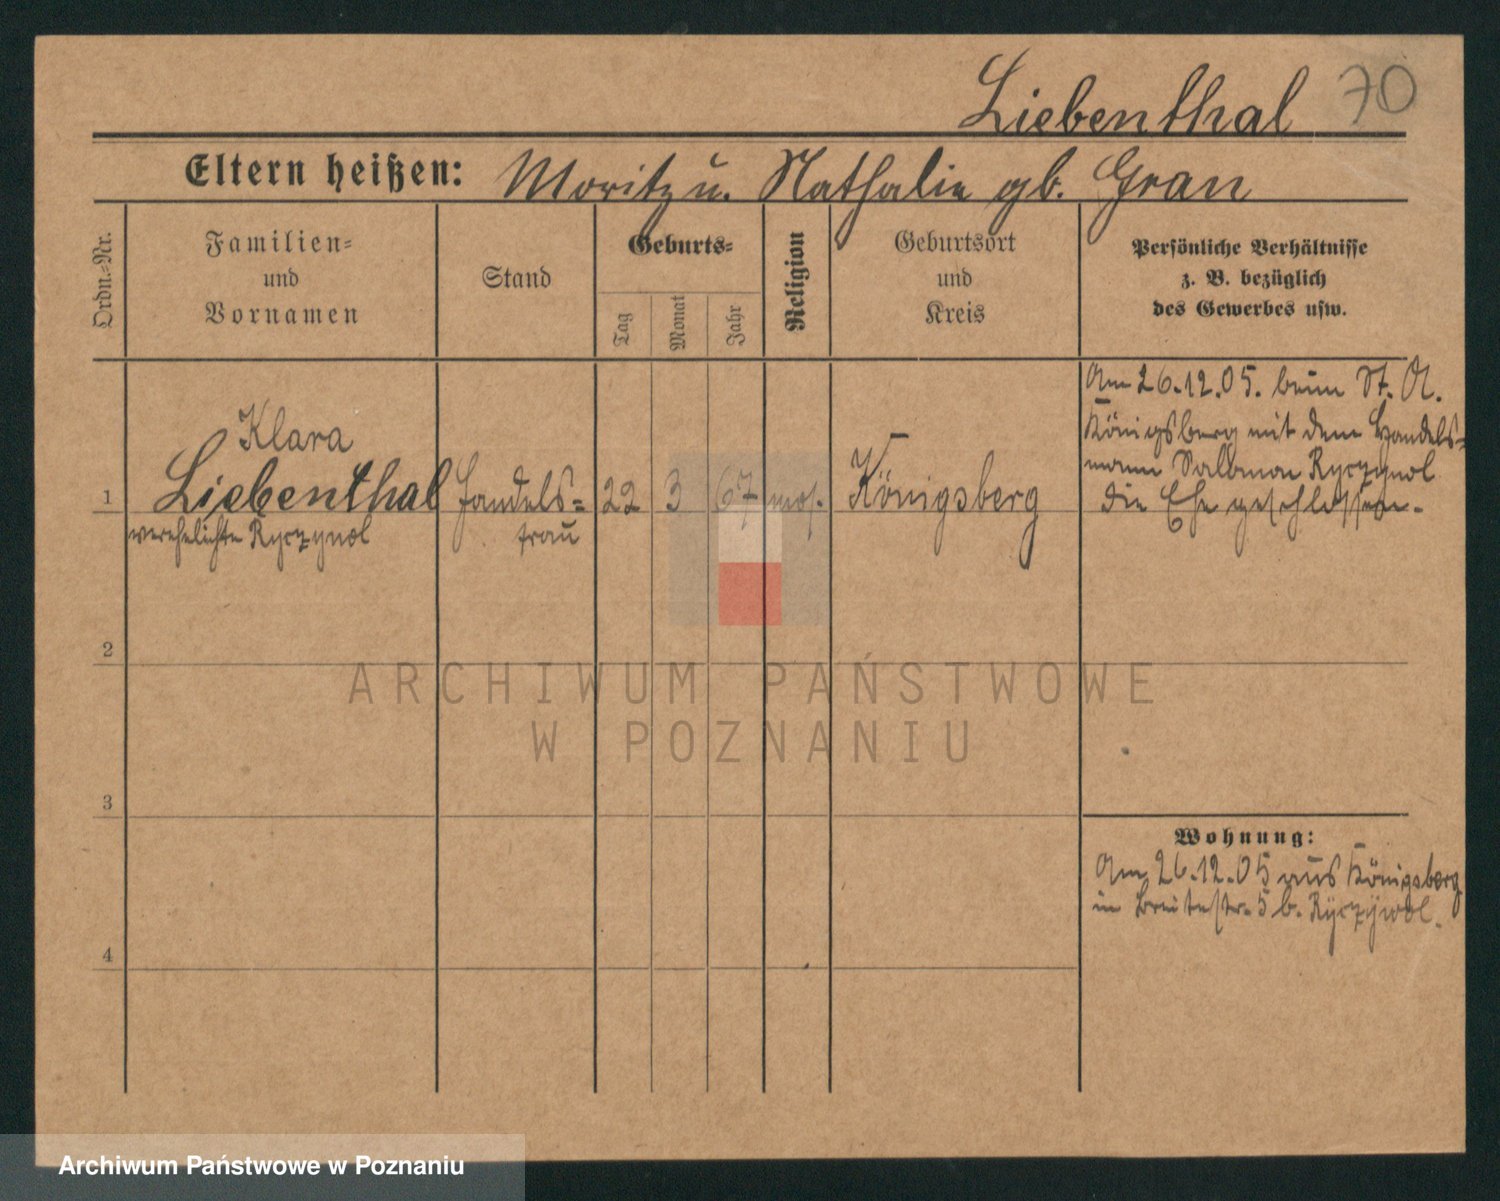 Liebenthal 70
Eltern heißen: Moritz u. Nathalie gb. Gran
Ordn.=Nr.
Familien=
und
Vornamen
Stand
Geburts=
Tag
Monat
Jahr
Religion
Geburtsort
und
Kreis
Persönliche Verhältnisse
z. B. bezüglich
des Gewerbes usw.
Klara
1 Liebenthal Handels= 22 3 67 mos. Königsberg
verehelichte Ryczywol frau
Am 26.12.05. beim St. A.
Königsberg mit dem Handels=
mann Salomon Ryczywol
die Ehe geschlossen.
2
3
4
Wohnung:
Am 26.12.05 aus Königsberg
in Breitestr. 5 b. Ryczywol.
ARCHIWUM PAŃSTWOWE
W POZNANIU
Archiwum Państwowe w Poznaniu